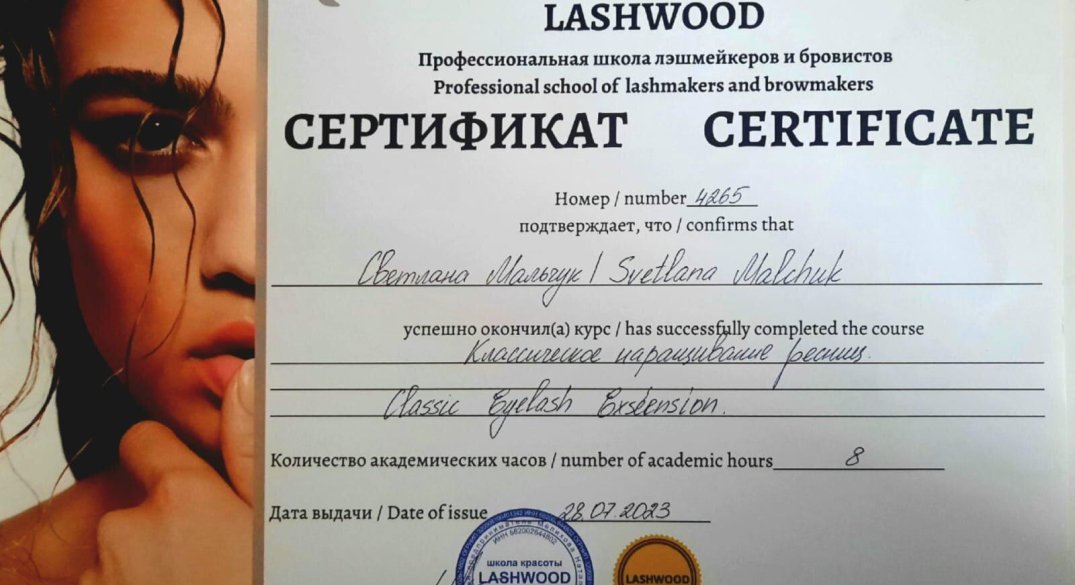 LASHWOOD
Профессиональная школа лэшмейкеров и бровистов
Professional school of lashmakers and browmakers
СЕРТИФИКАТ CERTIFICATE
Номер / number 4265
подтверждает, что / confirms that
Светлана Мальчук / Svetlana Malchuk
успешно окончил(а) курс / has successfully completed the course
Классическое наращивание ресниц.
Classic Eyelash Exstension.
Количество академических часов / number of academic hours 8
Дата выдачи / Date of issue 28.07.2023
школа красоты
LASHWOOD
LASHWOOD